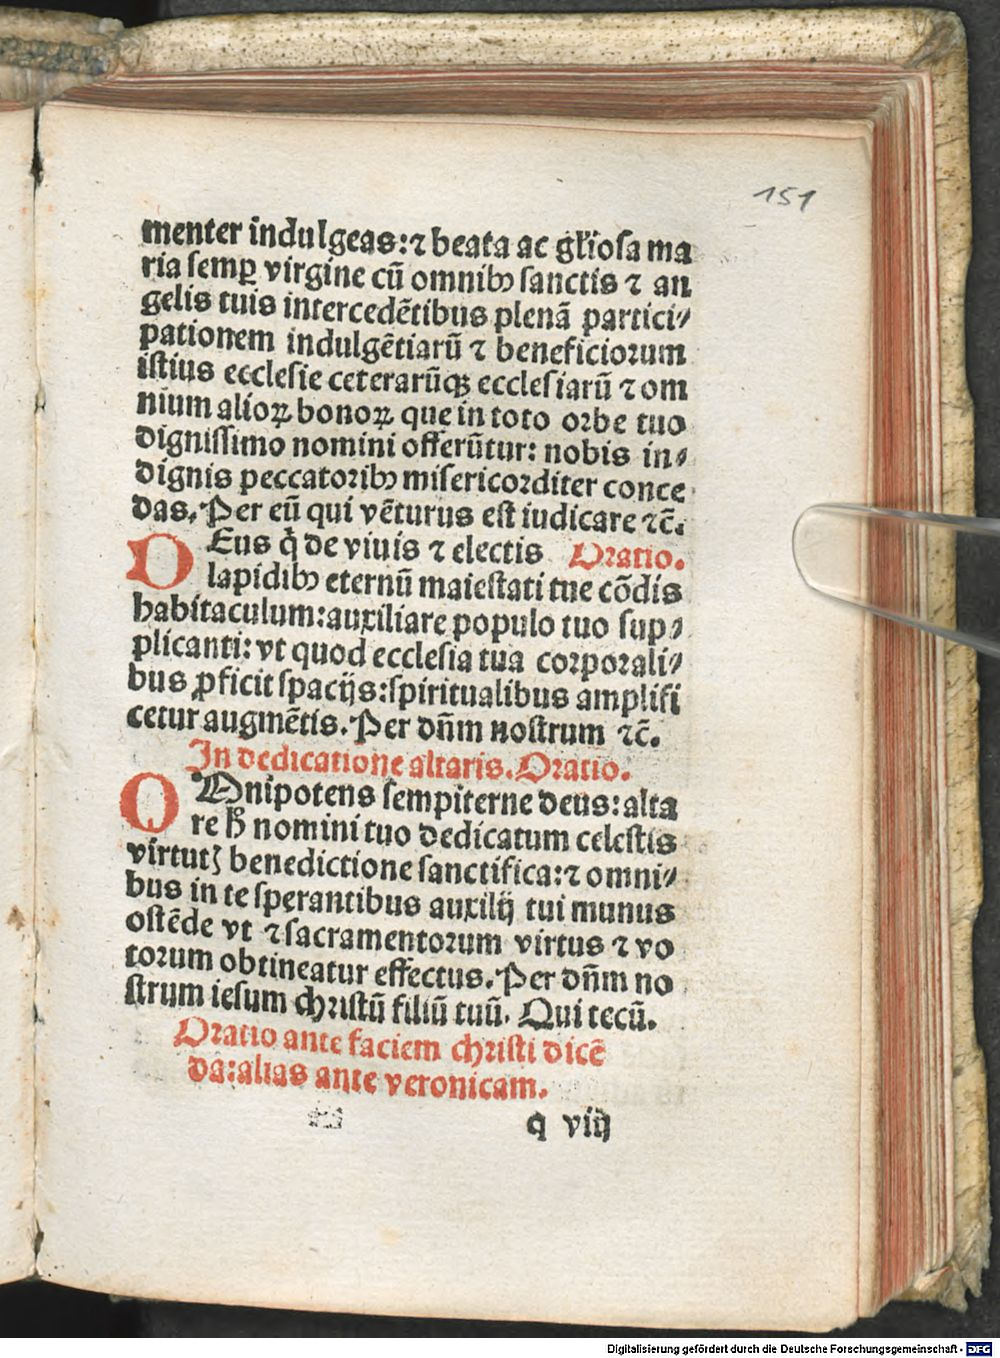 151
menter indulgeas: ⁊ beata ac gl'iosa ma
ria semꝑ virgine cū omnibꝰ sanctis ⁊ an
gelis tuis intercedētibus plenā partici⸗
pationem indulgētiarū ⁊ beneficiorum
istius ecclesie ceterarūqꝫ ecclesiarū ⁊ om
nium alioꝝ bonoꝝ que in toto orbe tuo
dignissimo nomini offerūtur: nobis in⸗
dignis peccatoribꝰ misericorditer conce
das. Per eū qui vēturus est iudicare ⁊c̄.
DEus q̇ de viuis ⁊ electis Oratio.
lapidibꝰ eternū maiestati tue cōdis
habitaculum: auxiliare populo tuo sup⸗
plicanti: vt quod ecclesia tua corporali⸗
bus ꝓficit spacijs: spiritualibus amplifi
cetur augmētis. Per dn̄m nostrum ⁊c̄.
In dedicatione altaris. Oratio.
OMnipotens sempiterne deus: alta
re h̄ nomini tuo dedicatum celestis
virtutꝭ benedictione sanctifica: ⁊ omni⸗
bus in te sperantibus auxilij tui munus
ostēde vt ⁊ sacramentorum virtus ⁊ vo
torum obtineatur effectus. Per dn̄m no
strum iesum christū filiū tuū. Qui tecū.
Oratio ante faciem christi dicē
da: alias ante veronicam.
q viij
Digitalisierung gefördert durch die Deutsche Forschungsgemeinschaft - DFG